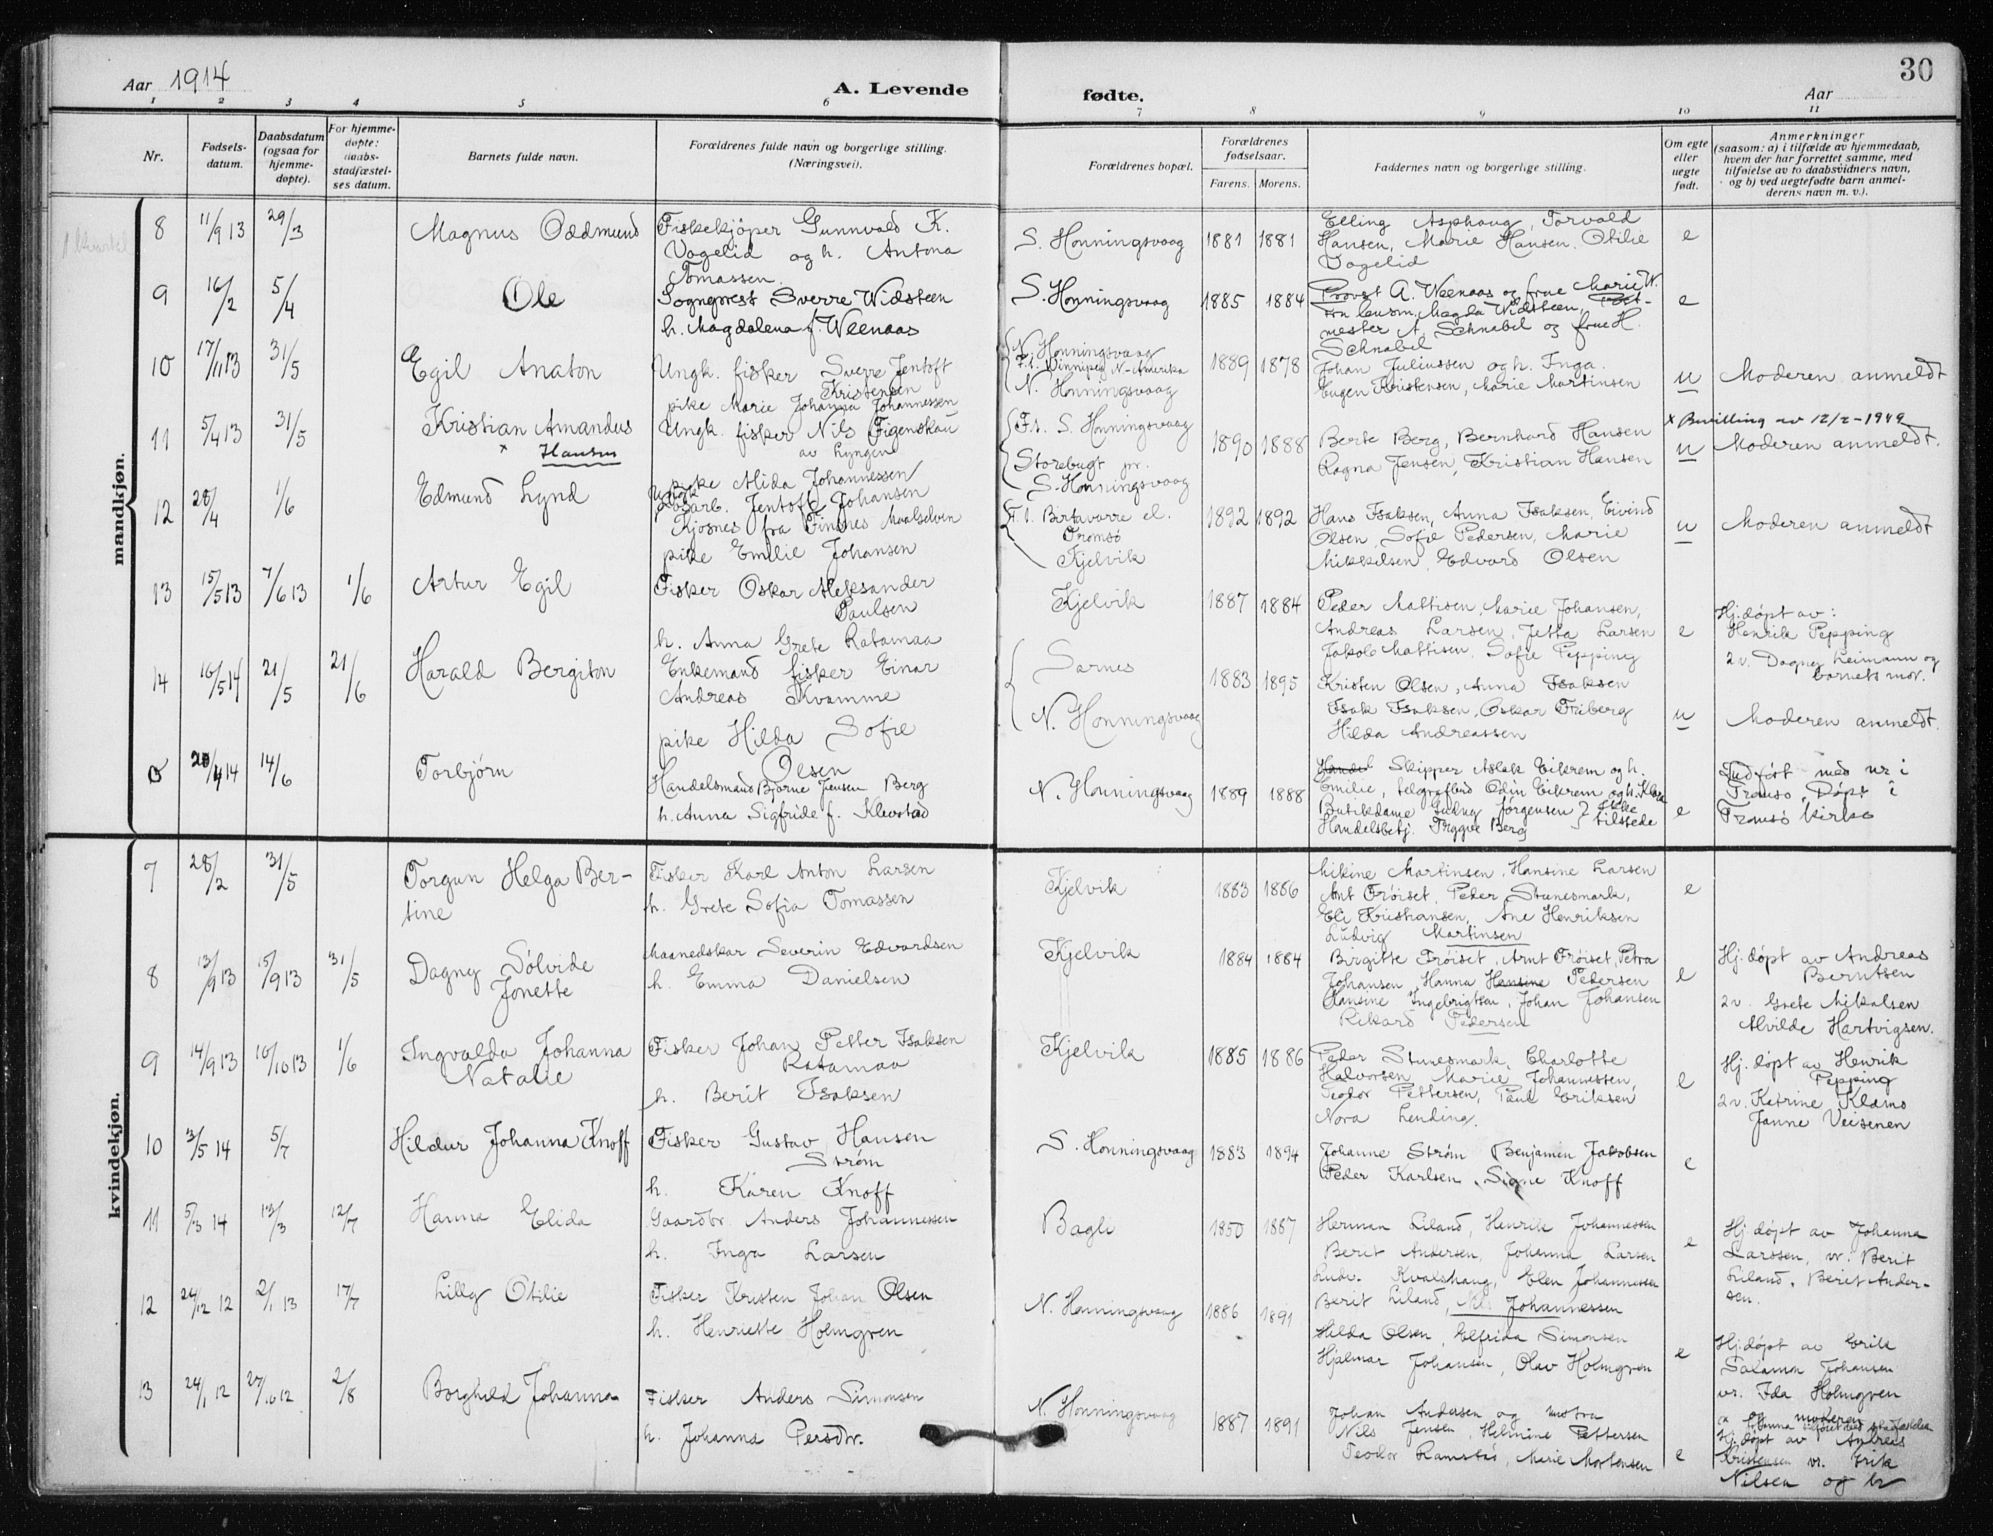 Aar 1914
A. Levende
fødte.
Aar
30
1 2 3 4 5 6 7 8 9 10 11
Nr.
Fødsels-
datum.
Daabsdatum
(ogsaa for
hjemme-
døpte).
For hjemme-
døpte:
daabs-
stadfæstel-
ses datum.
Barnets fulde navn.
Forældrenes fulde navn og borgerlige stilling.
(Næringsvei).
Forældrenes bopæl.
Forældrenes
fødselsaar.
Farens. Morens.
Faddernes navn og borgerlige stilling.
Om egte
eller
uegte
født.
Anmerkninger
(saasom: a) i tilfælde av hjemmedaab,
hvem der har forrettet samme, med
tilføielse av to daabsvidners navn,
og b) ved uegtefødte barn anmel-
derens navn m. v.).
mandkjøn.
8 11/9 13 29/3 Magnus Oddmund
Fiskekjøper Gunnvald K.
Vagelid og h. Antona
Tomassen
S. Honningsvaag 1881 1881
Elling Asphaug, Torvald
Hansen, Marie Hansen, Otilie
Vagelid
e
9 16/2 5/4 Ole
Sogneprest Sverre Widsteen
h. Magdalena f. Weenaas
S. Honningsvaag 1885 1884
Provst A. Weenaas og frue Marie W.
Magda Widsteen, Post-
mester A. Schnabel og frue H.
Schnabel
e
10 17/11 13 31/5 Egil Anaton
Ungk. fisker Sverre Jentoft
Kristensen
pike Marie Johanna Johannessen
N. Honningsvaag
F.t. Winnipeg N-Amerika
N. Honningsvaag
1889 1878
Johan Juliussen og h. Inga.
Eugen Kristensen, Marie Martinsen
u Moderen anmeldt
11 5/4 13 31/5 Kristian Amandus
x Hansen
Ungk. fisker Nils Figenskau
av Lyngen
pike Alida Johannessen
F.t. S. Honningsvaag
Storebugt pr.
S. Honningsvaag
1890 1888
Berte Berg, Bernhard Hansen
Ragna Jensen, Kristian Hansen
x Bevilling av 12/2-1949
u Moderen anmeldt.
12 28/4 1/6 Edmund Lynd
Ungk.
Jentoft Johansen
Kjosnes fra Finsnes Maalselven
pike Emilie Johansen
F.t. Birtavarre el.
Tromsø
Kjelvik
1892 1892
Hans Isaksen, Anna Isaksen, Eivind
Olsen, Sofie Pedersen, Marie
Mikkelsen, Edvard Olsen
u Moderen anmeldt
13 15/5 13 7/6 13 1/6 Artur Egil
Fisker Oskar Aleksander
Paulsen
h. Anna Grete Ratamaa
Kjelvik 1887 1884
Peder Mattisen, Marie Johansen,
Andreas Larsen, Jetta Larsen
Jakob Mattisen, Sofie Pepping
e
Hj.døpt av:
Henrik Pepping
2 v. Dagny Leimann og
barnets mor.
14 16/5 14 21/5 21/6 Harald Bergiton
Enkemand fisker Einar
Andreas Kvamme
pike Hilda Sofie
Olsen
Sarnes
N. Honningsvaag
1883 1895
Kristen Olsen, Anna Isaksen
Isak Isaksen, Oskar Friberg
Hilda Andreassen
u Moderen anmeldt.
0 20/4 14 14/6 Torbjørn
Handelsmand Bjarne Jensen Berg
h. Anna Sigfride f. Klevstad
N. Honningsvaag 1889 1888
Skipper Aslak Eikrem og h.
Emilie, telegrafbud Odin Eikrem og h. Klara
Butikdame Gudny Jørgensen } ikke
Handelsbetj. Trygve Berg } tilstede
e
Indført med nr i
Tromsø. Døpt i
Tromsø kirke
kvindekjøn.
7 28/2 31/5 Torgun Helga Ber-
tine
Fisker Karl Anton Larsen
h. Grete Sofia Tomassen
Kjelvik 1883 1886
Mikine Martinsen, Hansine Larsen
Ant Frøiset, Peder Stunesmark,
Eli Kristiansen, Ane Henriksen
Ludvig Martinsen
e
8 13/9 13 15/9 13 31/5 Dagny Sølvide
Jonette
Maanedskar Severin Edvardsen
h. Emma Danielsen
Kjelvik 1884 1884
Birgitte Frøiset, Arnt Frøiset, Petra
Johansen, Hanna Hansine Pedersen
Hansine Ingebrigtsen, Johan Johansen
Rikard Pedersen
e
Hj.døpt av Andreas
Berntsen
2 v. Grete Mikalsen
Alvilde Hartvigsen.
9 14/9 13 10/10 13 1/6 Ingvalda Johanna
Natalie
Fisker Johan Petter Isaksen
Ratamaa
h. Berit Isaksen
Kjelvik 1885 1886
Peder Stunesmark, Charlotte
Halvorsen, Marie Johannessen,
Teodor Pettersen, Paul Eriksen
Nora Lending.
e
Hj.døpt av Henrik
Pepping
2 v. Katrine Klams
Janne Veisenen
10 3/5 14 5/7 Hildur Johanna Knoff
Fisker Gustav Hansen
Strøm
h. Karen Knoff
S. Honningsvaag 1883 1894
Johanne Strøm Benjamin Jakobsen
Peder Karlsen, Signe Knoff
e
11 5/3 14 13/3 12/7 Hanna Elida
Gaardbr. Anders Johannessen
h. Inga Larsen
Bagli 1850 1887
Herman Liland, Henrik Johannessen
Berit Andersen, Johanna Larsen
Ludv. Kvalshaug, Elen Johannessen
Berit Liland, Johannessen
e
Hj.døpt av Johanna
Larssen, vr. Berit
Liland, Berit Ander-
sen.
12 24/12 12 2/1 13 17/7 Lilly Otilie
Fisker Kristen Johan Olsen
h. Henriette Holmgren
N. Honningsvaag 1886 1891
Hilda Olsen, Elfrida Simonsen
Hjalmar Johansen, Olav Holmgren
e
Hj.døpt av Erik
Salamon Johansen
vr. Ida Holmgren
og moderen
13 24/1 12 27/10 12 2/8 Borghild Johanna
Fisker Anders Simonsen
h. Johanna Persdtr.
N. Honningsvaag 1887 1891
Johan Andersen og hustru
Nils Jensen, Helmine Pettersen
Teodor Ramstad, Marie Mortensen
e
Hj.døpt av Andreas
Kristensen vr. Erik
Nilsen og